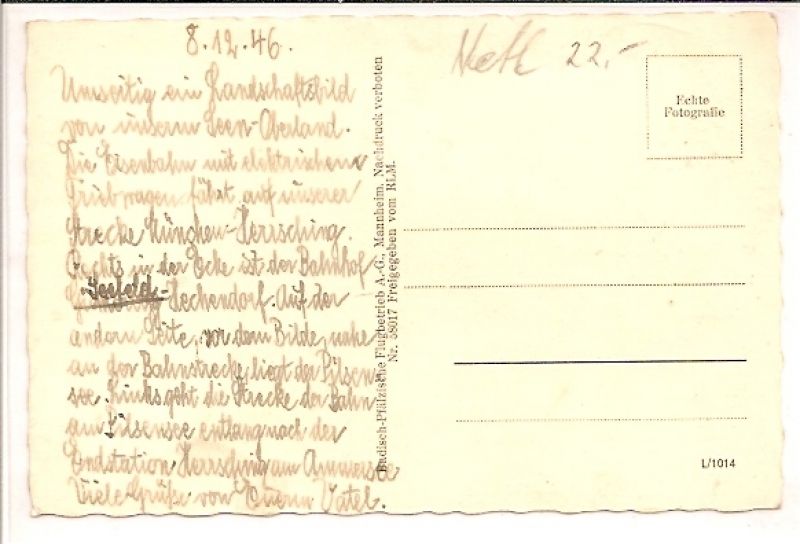 8.12.46.
Umseitig ein Landschaftsbild
von unserm Seen-Oberland.
Die Eisenbahn mit elektrischem
Triebwagen fährt auf unserer
Strecke München-Herrsching.
Rechts in der Ecke ist der Bahnhof
Seefeld-
Hechendorf. Auf der
andern Seite, vor dem Bilde, nahe
an der Bahnstrecke, liegt der Pilsen
see. Links geht die Strecke der Bahn
am Pilsensee entlang nach der
Endstation Herrsching am Ammersee
Viele Grüße von Euerm Vatel.
Badisch-Pfälzische Flugbetrieb A.-G., Mannheim. Nachdruck verboten
Nr. 58017 Freigegeben vom RLM.
22.-
Echte
Fotografie
L/1014